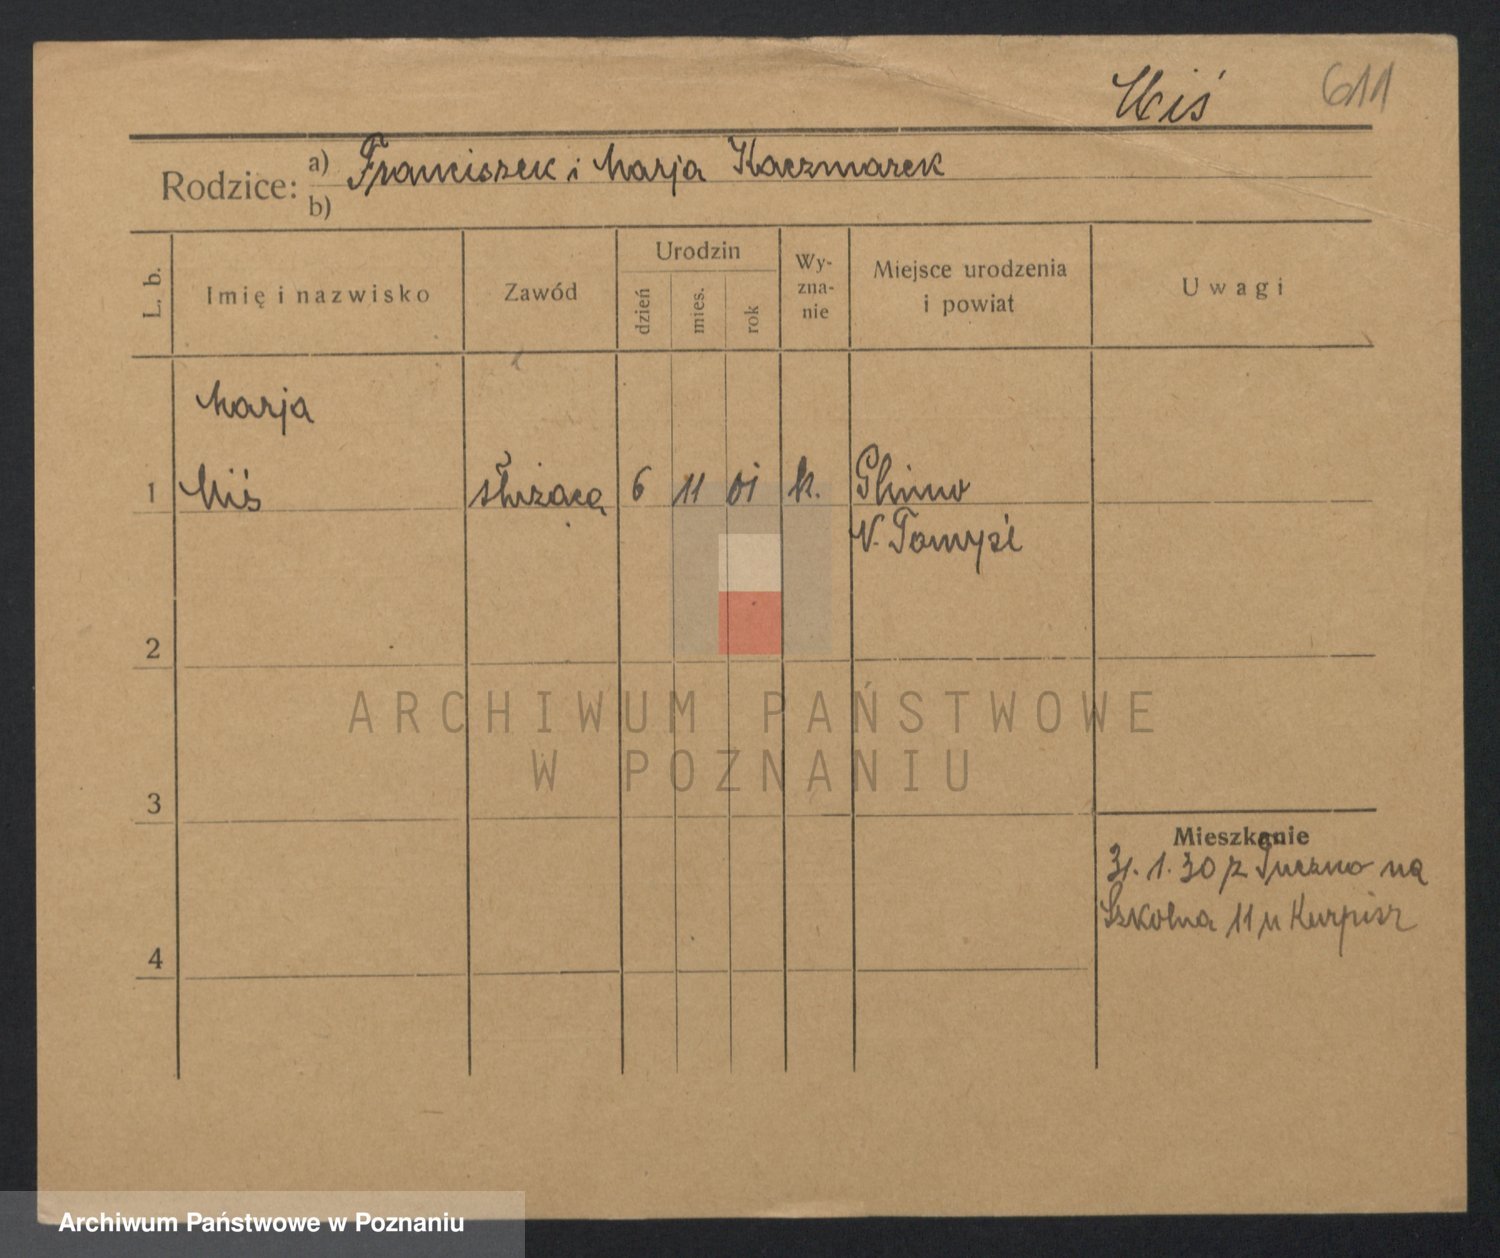 Miś 611
Rodzice: a) Franciszek i Marja Kaczmarek
b)
L. b. Imię i nazwisko Zawód Urodzin dzień mies. rok Wyznanie Miejsce urodzenia i powiat Uwagi
Marja
1 Miś służąca 6 11 01 k. Glinno
N. Tomyśl
2
ARCHIWUM PAŃSTWOWE
W POZNANIU
3
Mieszkanie
31. 1. 30 z na
Szkolna 11 u Kurpisz
4
Archiwum Państwowe w Poznaniu